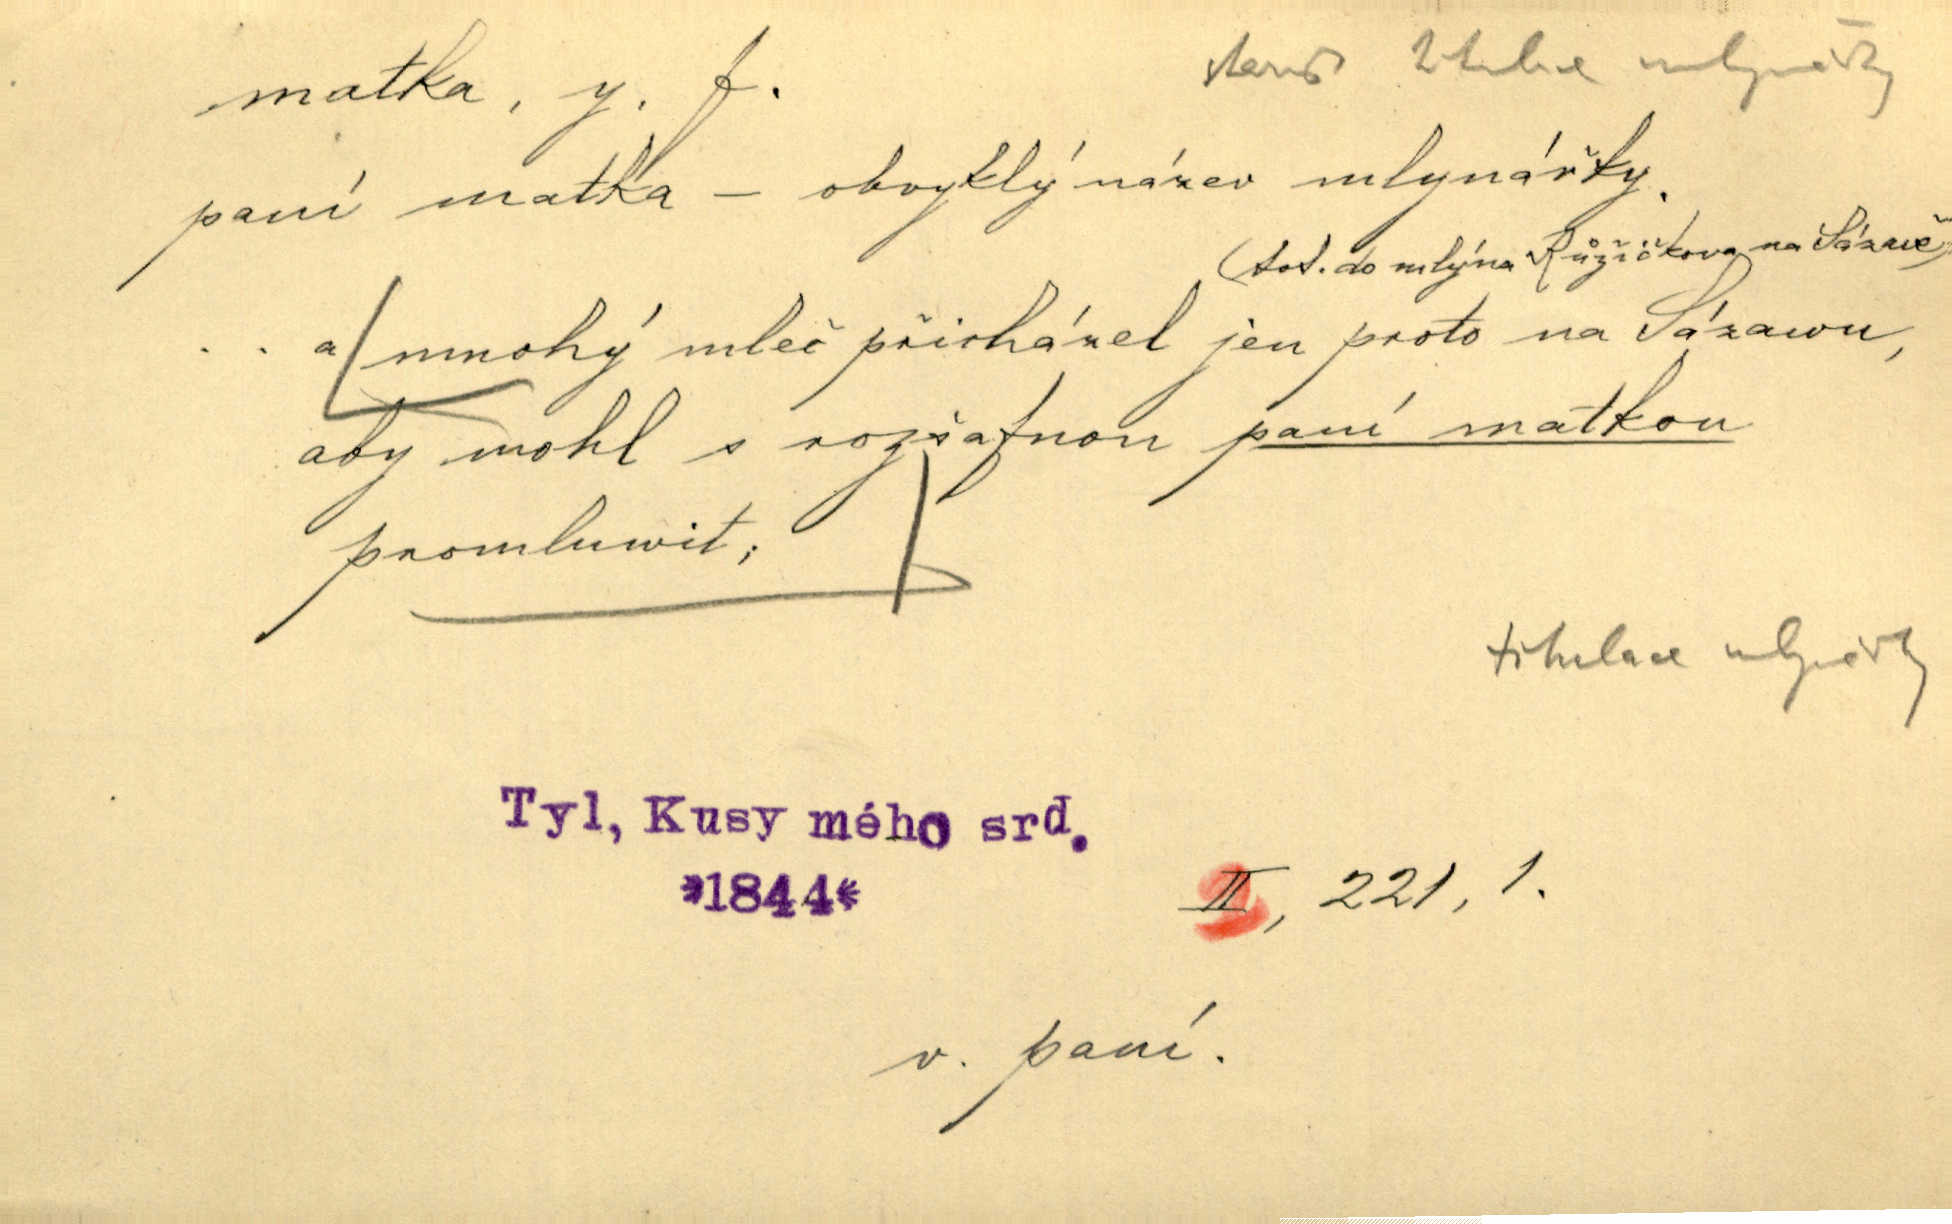 matka, y. f.
titulace mlynářky
paní matka – obvyklý název mlynářky.
(tot. do mlýna Růžičkova na Sázavě)
. . a mnohý mleč přicházel jen proto na Sázawu,
aby mohl s rozšafnou paní matkou
promluwit;
titulace mlynářky
Tyl, Kusy mého srd.
*1844*
II, 221, 1.
v. paní.